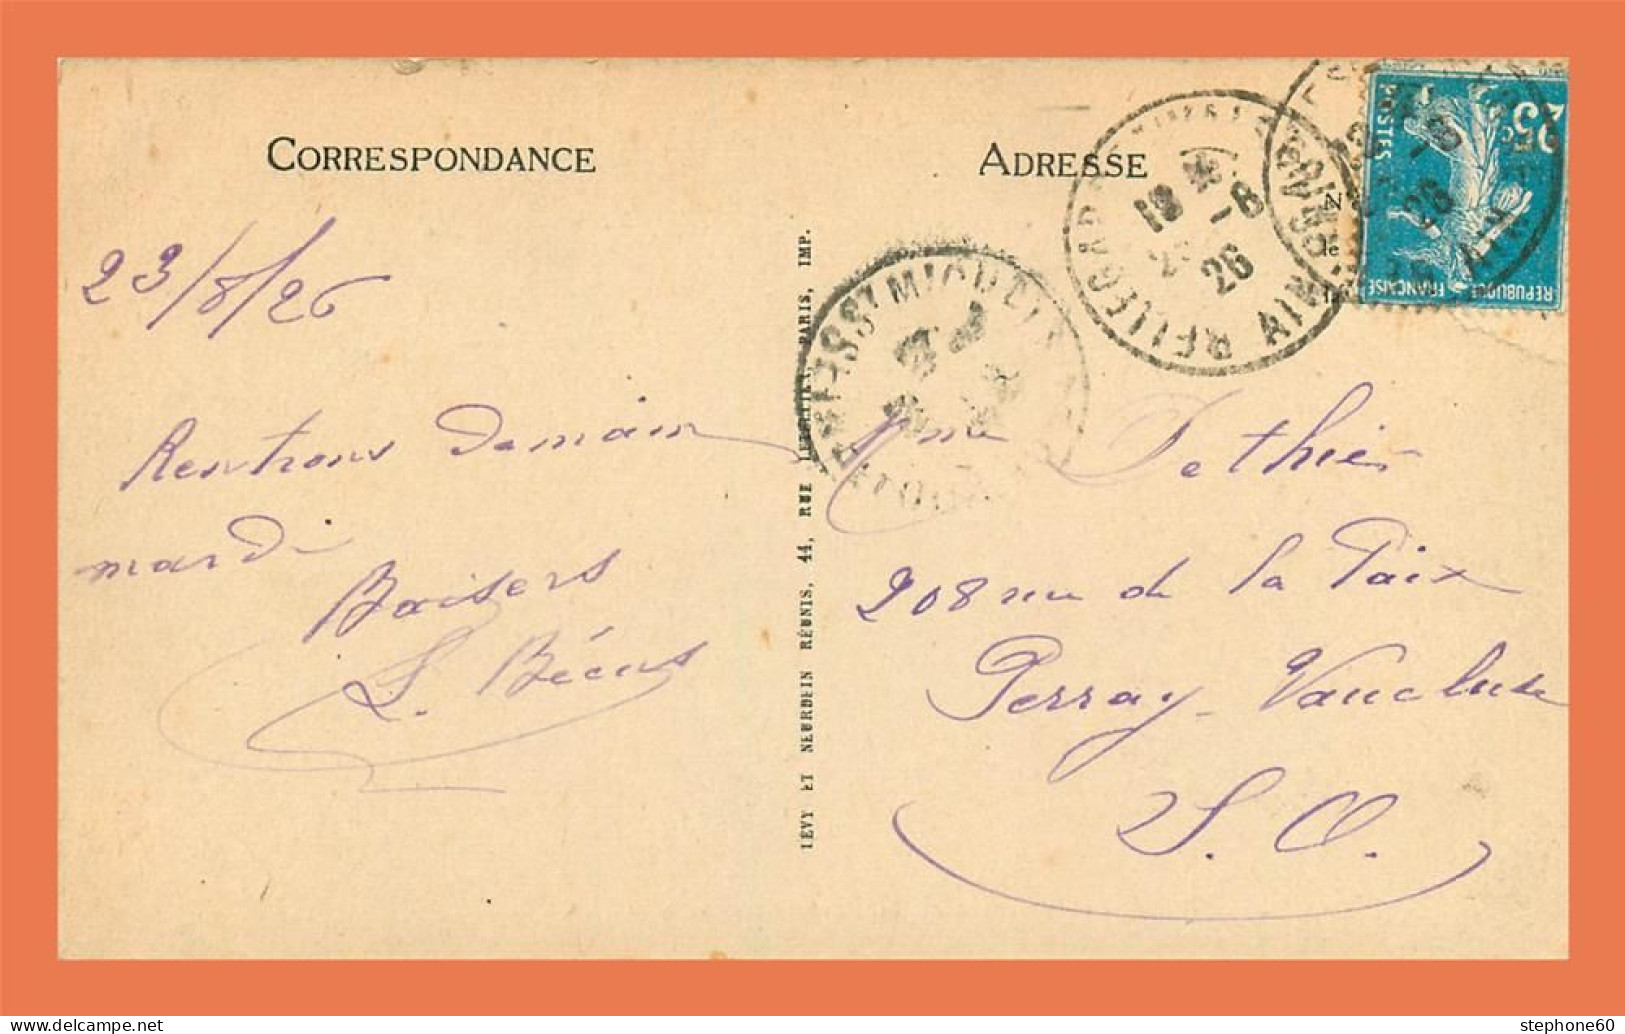 CORRESPONDANCE
23/8/26
Rentrons demain
mardi
Baisers
S. Bécus
LÉVY ET NEURDEIN RÉUNIS, 44, RUE LETELLIER, PARIS, IMP.
ADRESSE
Mme Pethier
208 rue de la Paix
Perray-Vaucluse
S. O.
BELLEGARDE
AIN
18
-8
26
-8
26
AIN
25c
POSTES
REPUBLIQUE FRANÇAISE
stephone60
www.delcampe.net